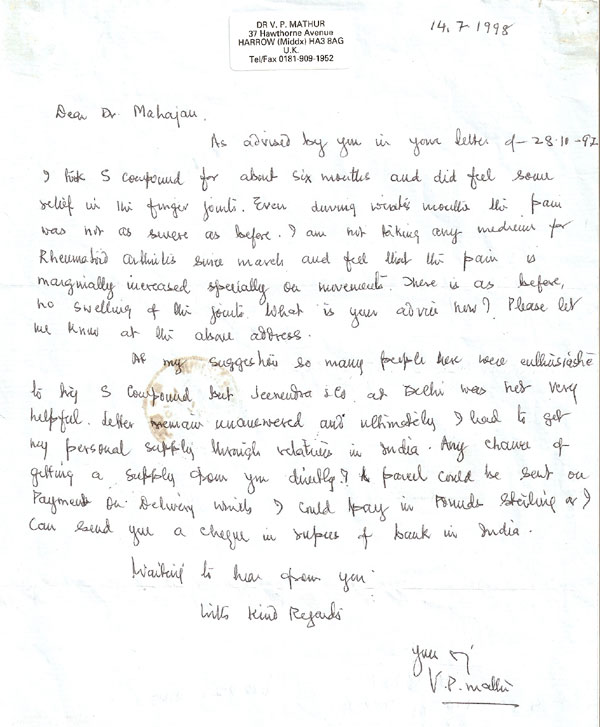 DR V. P. MATHUR
37 Hawthorne Avenue
HARROW (Middx) HA3 8AG
U.K.
Tel/Fax 0181-909-1952
14.7.1998
Dear Dr. Mahajan.
As advised by you in your letter of - 28-10-97
I took S compound for about six months and did feel some
relief in the finger joints. Even during winter months the pain
was not as severe as before. I am not taking any medicine for
Rheumatoid arthritis since march and feel that the pain is
marginally increased specially on movements. There is as before,
no swelling of the joints. What is your advice now? Please let
me know at the above address.
At my suggestion so many people here were enthusiastic
to try S Compound but Jeenendra & Co. at Delhi was not very
helpful. Letter remain unanswered and ultimately I had to get
my personal supply through relatives in India. Any chance of
getting a supply from you directly? A parcel could be sent on
Payment on Delivery which I could pay in Pounds Sterling or I
Can send you a cheque in rupees of bank in India.
Waiting to hear from you.
With Kind Regards
V. P. Mathur